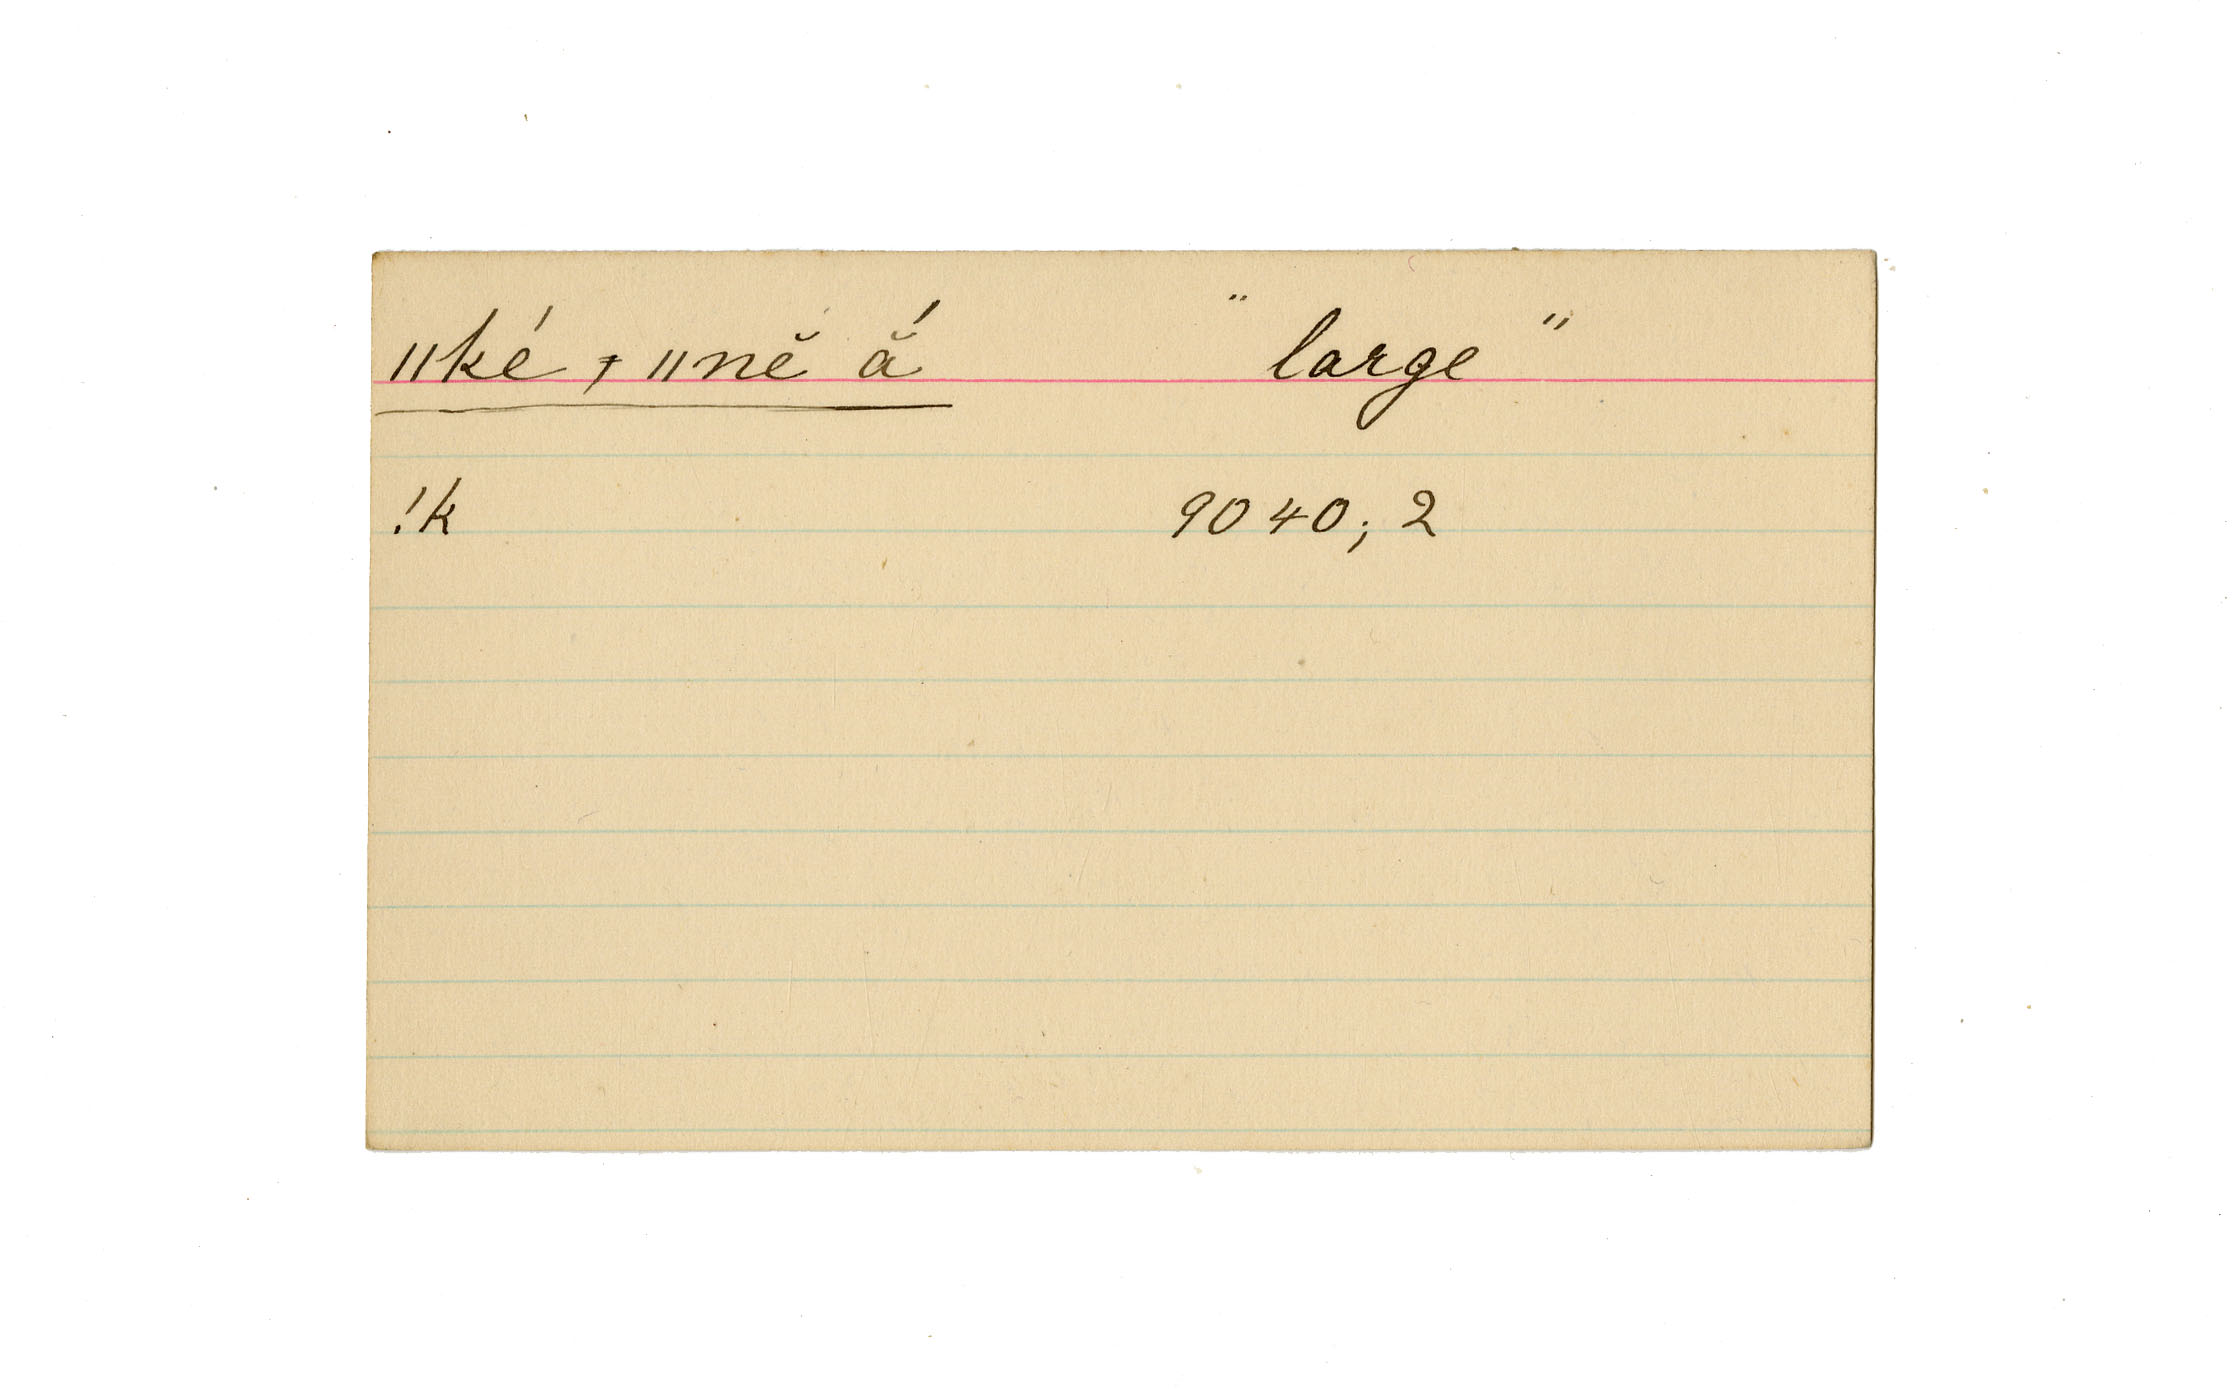 ǁké ₊ ǁnĕ ắ "large"
!k 9040; 2